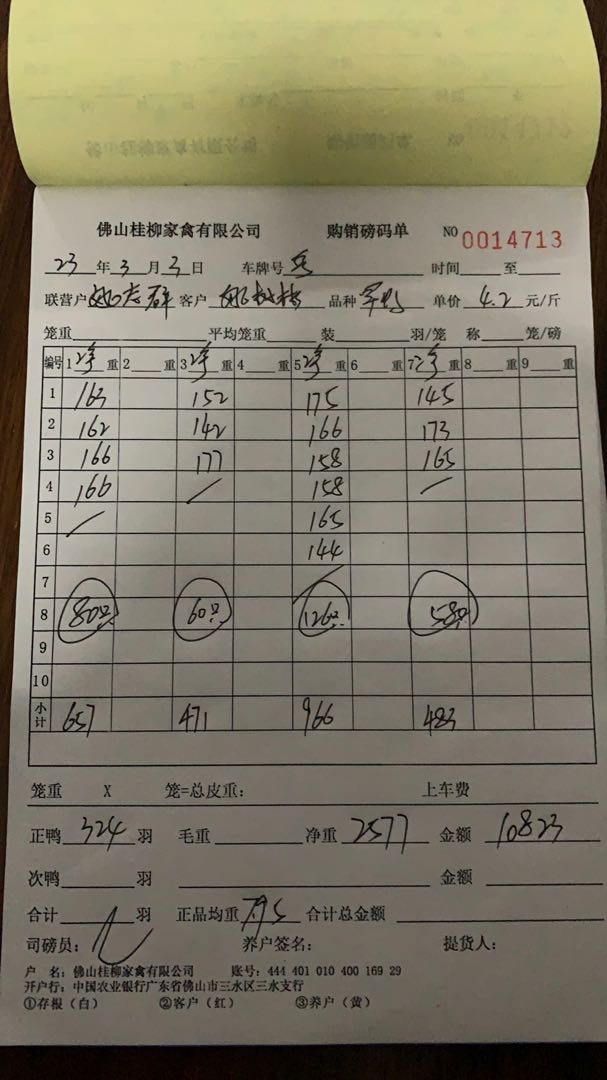 佛山桂柳家禽有限公司 购销磅码单 NO 0014713
23 年 3 月 3 日 车牌号 时间 至
联营户 客户 品种 单价 4.2 元/斤
笼重 平均笼重 装 羽/笼 称 笼/磅
编号 1 净 重 2 重 3 净 重 4 重 5 净 重 6 重 7 净 重 8 重 9 重
1 163 152 175 145
2 162 142 166 173
3 166 177 158 165
4 166 / 158 /
5 / 165
6 144
7 /
8 80只 60只 126只 58只
9
10
小计 657 471 966 483
笼重 X 笼=总皮重: 上车费
正鸭 324 羽 毛重 净重 2577 金额 10823
次鸭 羽 金额
合计 羽 正品均重 7.95 合计总金额
司磅员: 养户签名: 提货人:
户 名: 佛山桂柳家禽有限公司 账号: 444 401 010 400 169 29
开户行: 中国农业银行广东省佛山市三水区三水支行
①存根(白) ②客户(红) ③养户(黄)